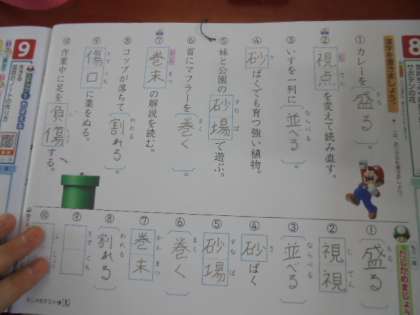 9
① カレーを盛る。
② 視点を変えて読み直す。
③ いすを一列に並べる。
④ 砂ばくでも育つ強い植物。
⑤ 妹と公園の砂場で遊ぶ。
⑥ 首にマフラーを巻く。
⑦ 巻末の解説を読む。
⑧ コップが落ちて割れる。
⑨ 傷口に薬をぬる。
⑩ 作業中に足を負傷する。
① 盛る
② 視視
③ 並べる
④ 砂ばく
⑤ 砂場
⑥ 巻く
⑦ 巻末
⑧ 割れる
⑨
⑩
8